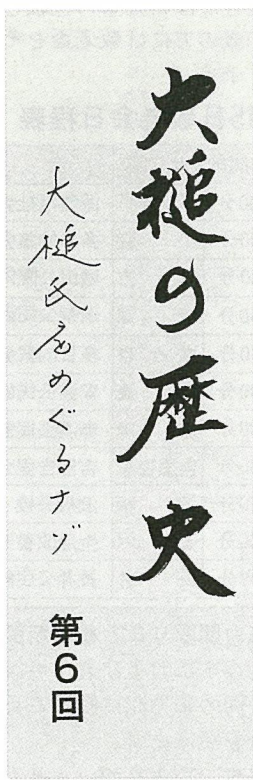 大槌の歴史
大槌氏をめぐるナゾ
第6回